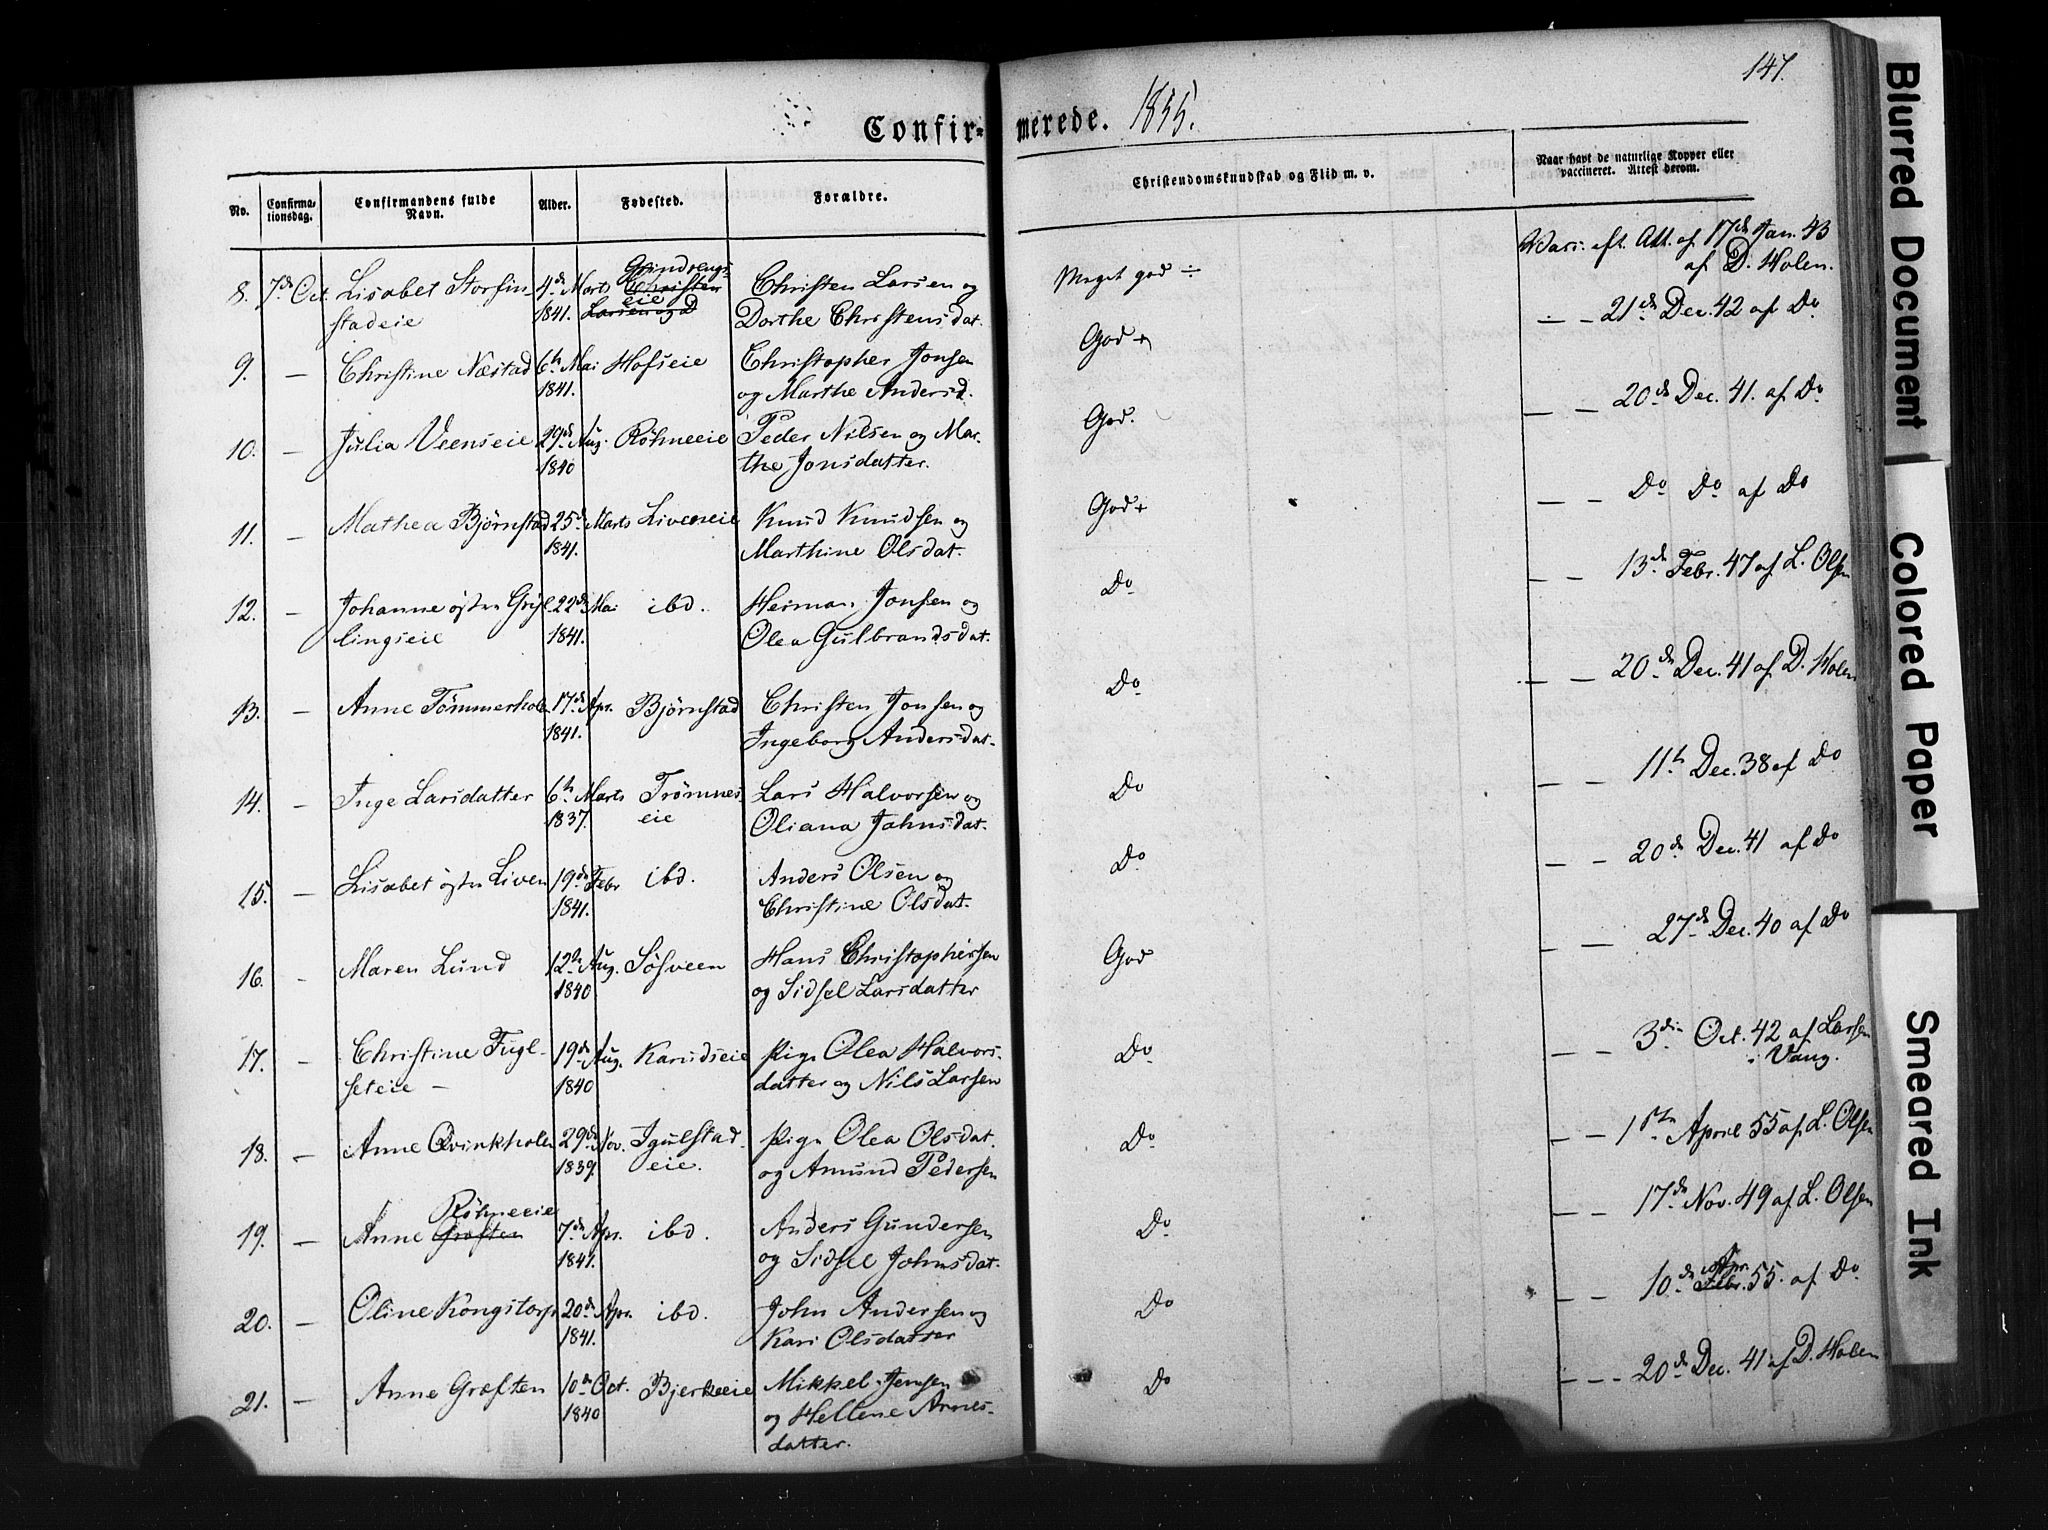 147.
Confir- merede. 1855.
No. Confirma-tionsdag. Confirmandens fulde Navn. Alder. Fødested. Forældre. Christendomskundskab og Flid m. v. Naar havt de naturlige Kopper eller vaccineret. Attest derom.
8. 7de Oct. Lisabet Storfin- 4de Marts Grindvegs- Christen Larsen og Meget god ÷ Vacc. eft. Att. af 17de Jan. 43
stadeie 1841. eie Dorthe Christensdat. af D. Holen.
9. — Christine Næstad 6te Mai Hofseie Christopher Jonsen God + — — 21de Dec. 42 af Do
1841. og Marthe Andersd.
10. — Julia Veenseie 29de Aug. Røhneeie Peder Nilsen og Mar- God. — — 20de Dec. 41. af Do
1840 the Jonsdatter.
11. — Mathea Bjørnstad 25de Marts Liveneie Knud Knudsen og God + — — Do Do af Do
1841. Marthine Olsdat.
12. — Johanne østre Gryt- 22de Mai ibd. Herman Jonsen og Do — — 13de Febr. 47 af L. Olsen
lingseie 1841. Olea Gulbrandsdat.
13. — Anne Tømmerholen 17de Apr. Bjørnstad Christen Jonsen og Do — — 20de Dec. 41 af D. Holen
1841. Ingeborg Andersdat.
14. — Inge Larsdatter 6te Marts Trømnes- Lars Halvorsen og Do — — 11te Dec. 38 af Do
1837. eie Oliana Johnsdat.
15. — Lisabet østre Liven 19de Febr ibd. Anders Olsen og Do — — 20de Dec. 41 af Do
1841. Christine Olsdat.
16. — Maren Lund 12te Aug. Søsveen Hans Christophersen God — — 27de Dec. 40 af Do
1840 og Sidsel Larsdatter
17. — Christine Fugl- 19de Aug. Karudseie Pige Olea Halvors- Do — — 3die Oct. 42 af Larsen
seteie — 1840 datter og Nils Larsen i Vang.
18. — Anne Qvinkholen 29de Nov. Igulstad- Pige Olea Olsdat. Do — — 1ste April 55 af L. Olsen
1839. eie. og Amund Pedersen
19. — Anne Røhneeie 7de Apr. ibd. Anders Gundersen Do — — 17de Nov. 49 af L. Olsen
1841. og Sidsel Johnsdat.
20. — Oline Kongstorp 20de Apr. ibd. John Andersen og Do — — 10de Apr. 55. af Do
1841. Kari Olsdatter
21. — Anne Grøften 10de Oct. Bjerkeeie Mikkel Jensen Do — — — 20de Dec. 41 af D. Holen
1840 og Hellene Arnes-
datter.
Blurred Document
Colored Paper
Smeared Ink